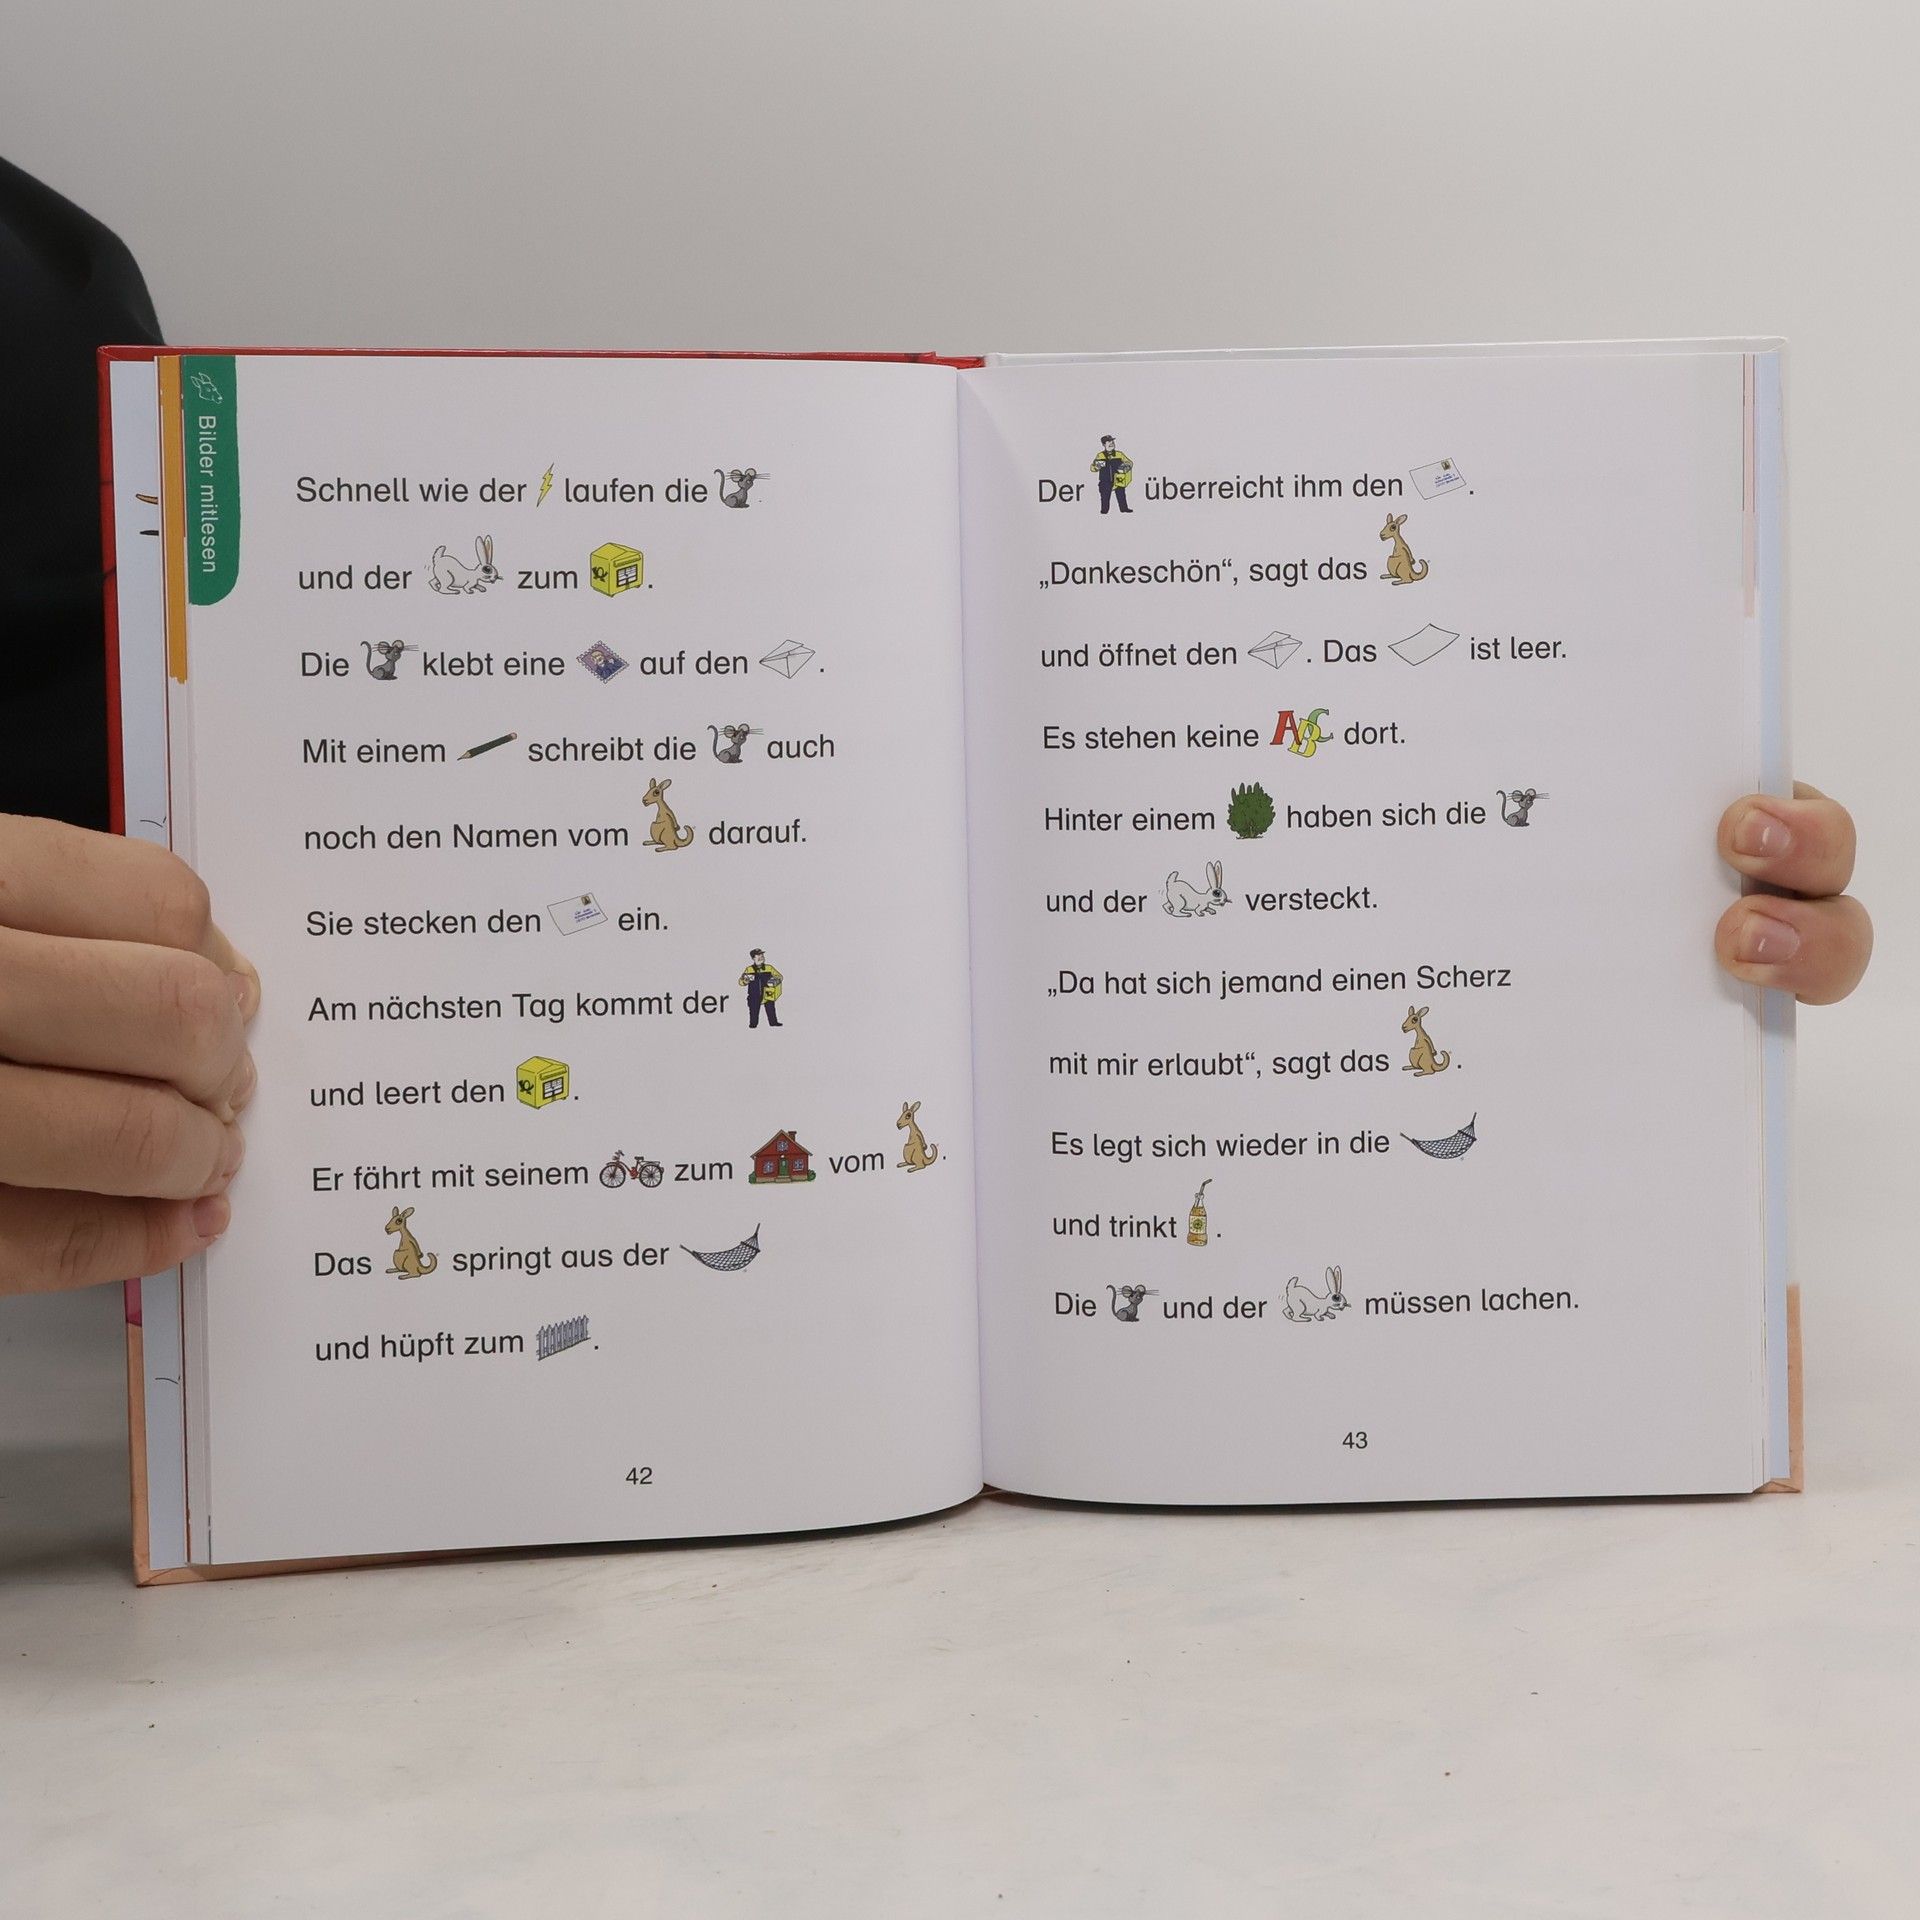 Bilder mitlesen
Schnell wie der laufen die
und der zum .
Die klebt eine auf den .
Mit einem schreibt die auch
noch den Namen vom darauf.
Sie stecken den ein.
Am nächsten Tag kommt der
und leert den .
Er fährt mit seinem zum vom .
Das springt aus der
und hüpft zum .
42
Der überreicht ihm den .
„Dankeschön“, sagt das
und öffnet den . Das ist leer.
Es stehen keine ABC dort.
Hinter einem haben sich die
und der versteckt.
„Da hat sich jemand einen Scherz
mit mir erlaubt“, sagt das .
Es legt sich wieder in die
und trinkt .
Die und der müssen lachen.
43